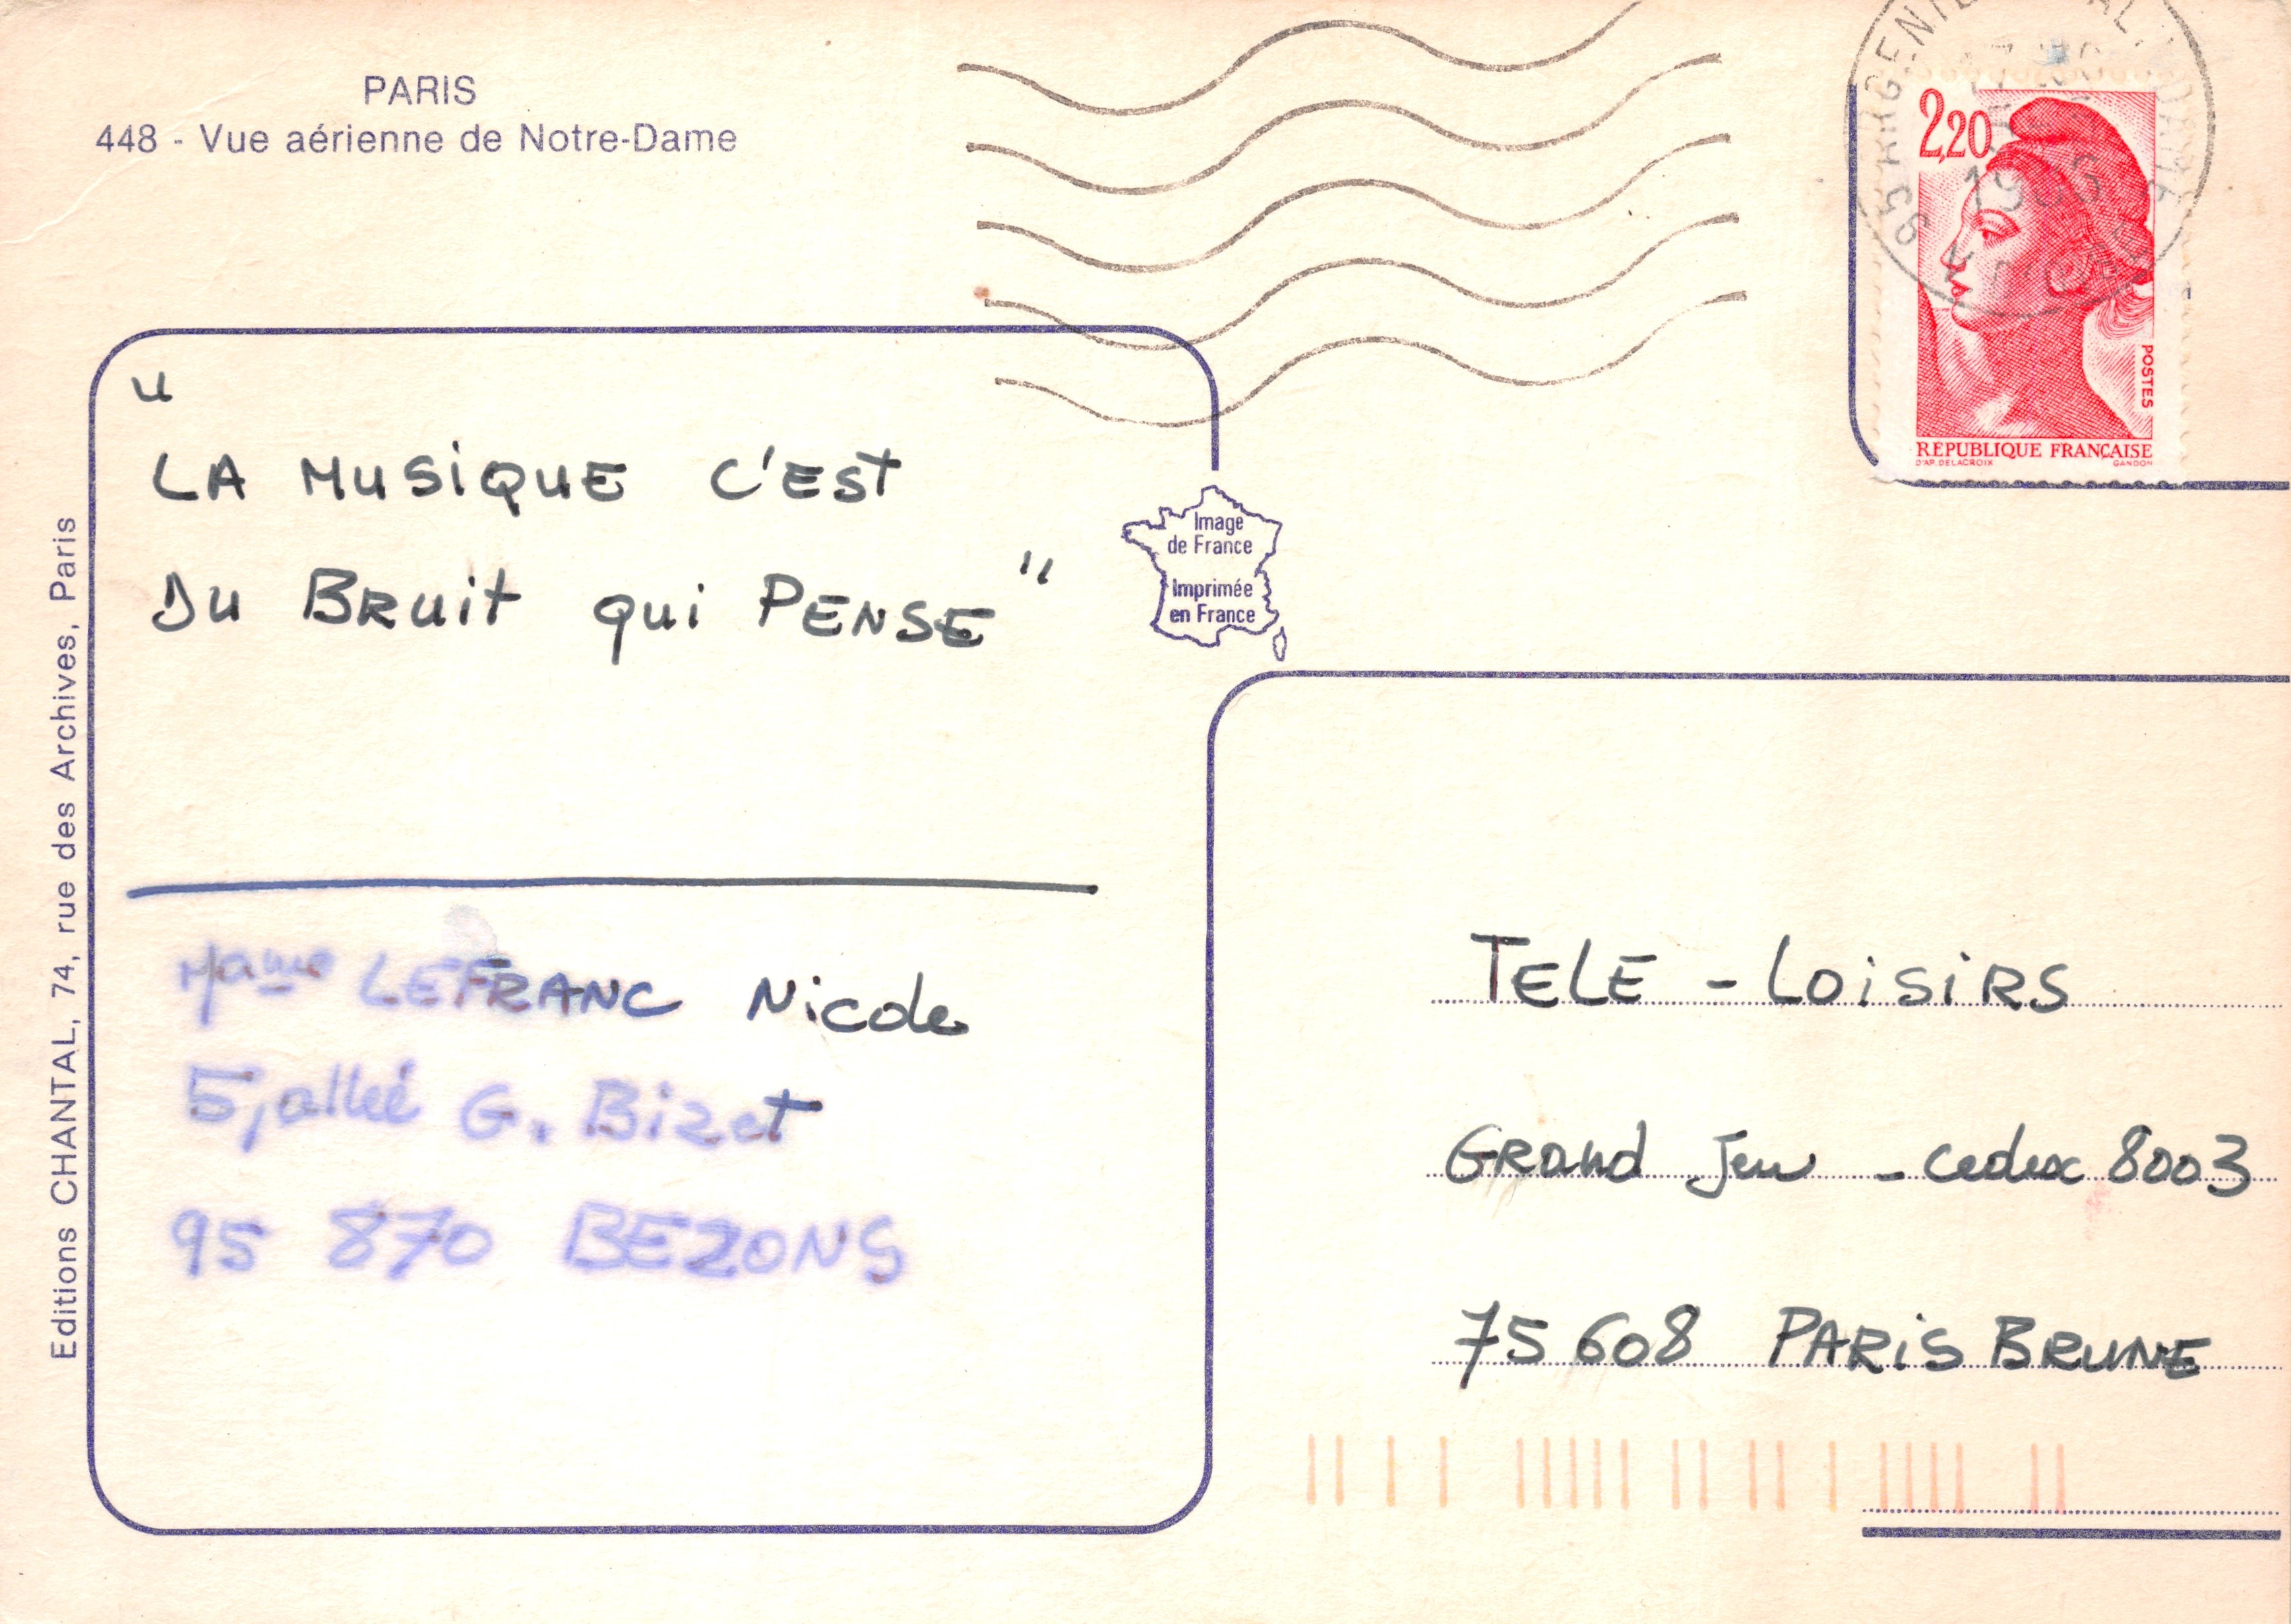 PARIS
448 - Vue aérienne de Notre-Dame
2,20
POSTES
RÉPUBLIQUE FRANÇAISE
D'AP. DELACROIX GANDON
"
LA MUSiQUE C'EST
DU BRuit qui PENSE"
Image
de France
Imprimée
en France
Editions CHANTAL, 74, rue des Archives, Paris
Mame LEFRANC Nicole
5, allée G. Bizet
95 870 BEZONS
TELE - LOiSiRS
GRand Jeu - cedex 8003
75 608 PARiS BRUNE